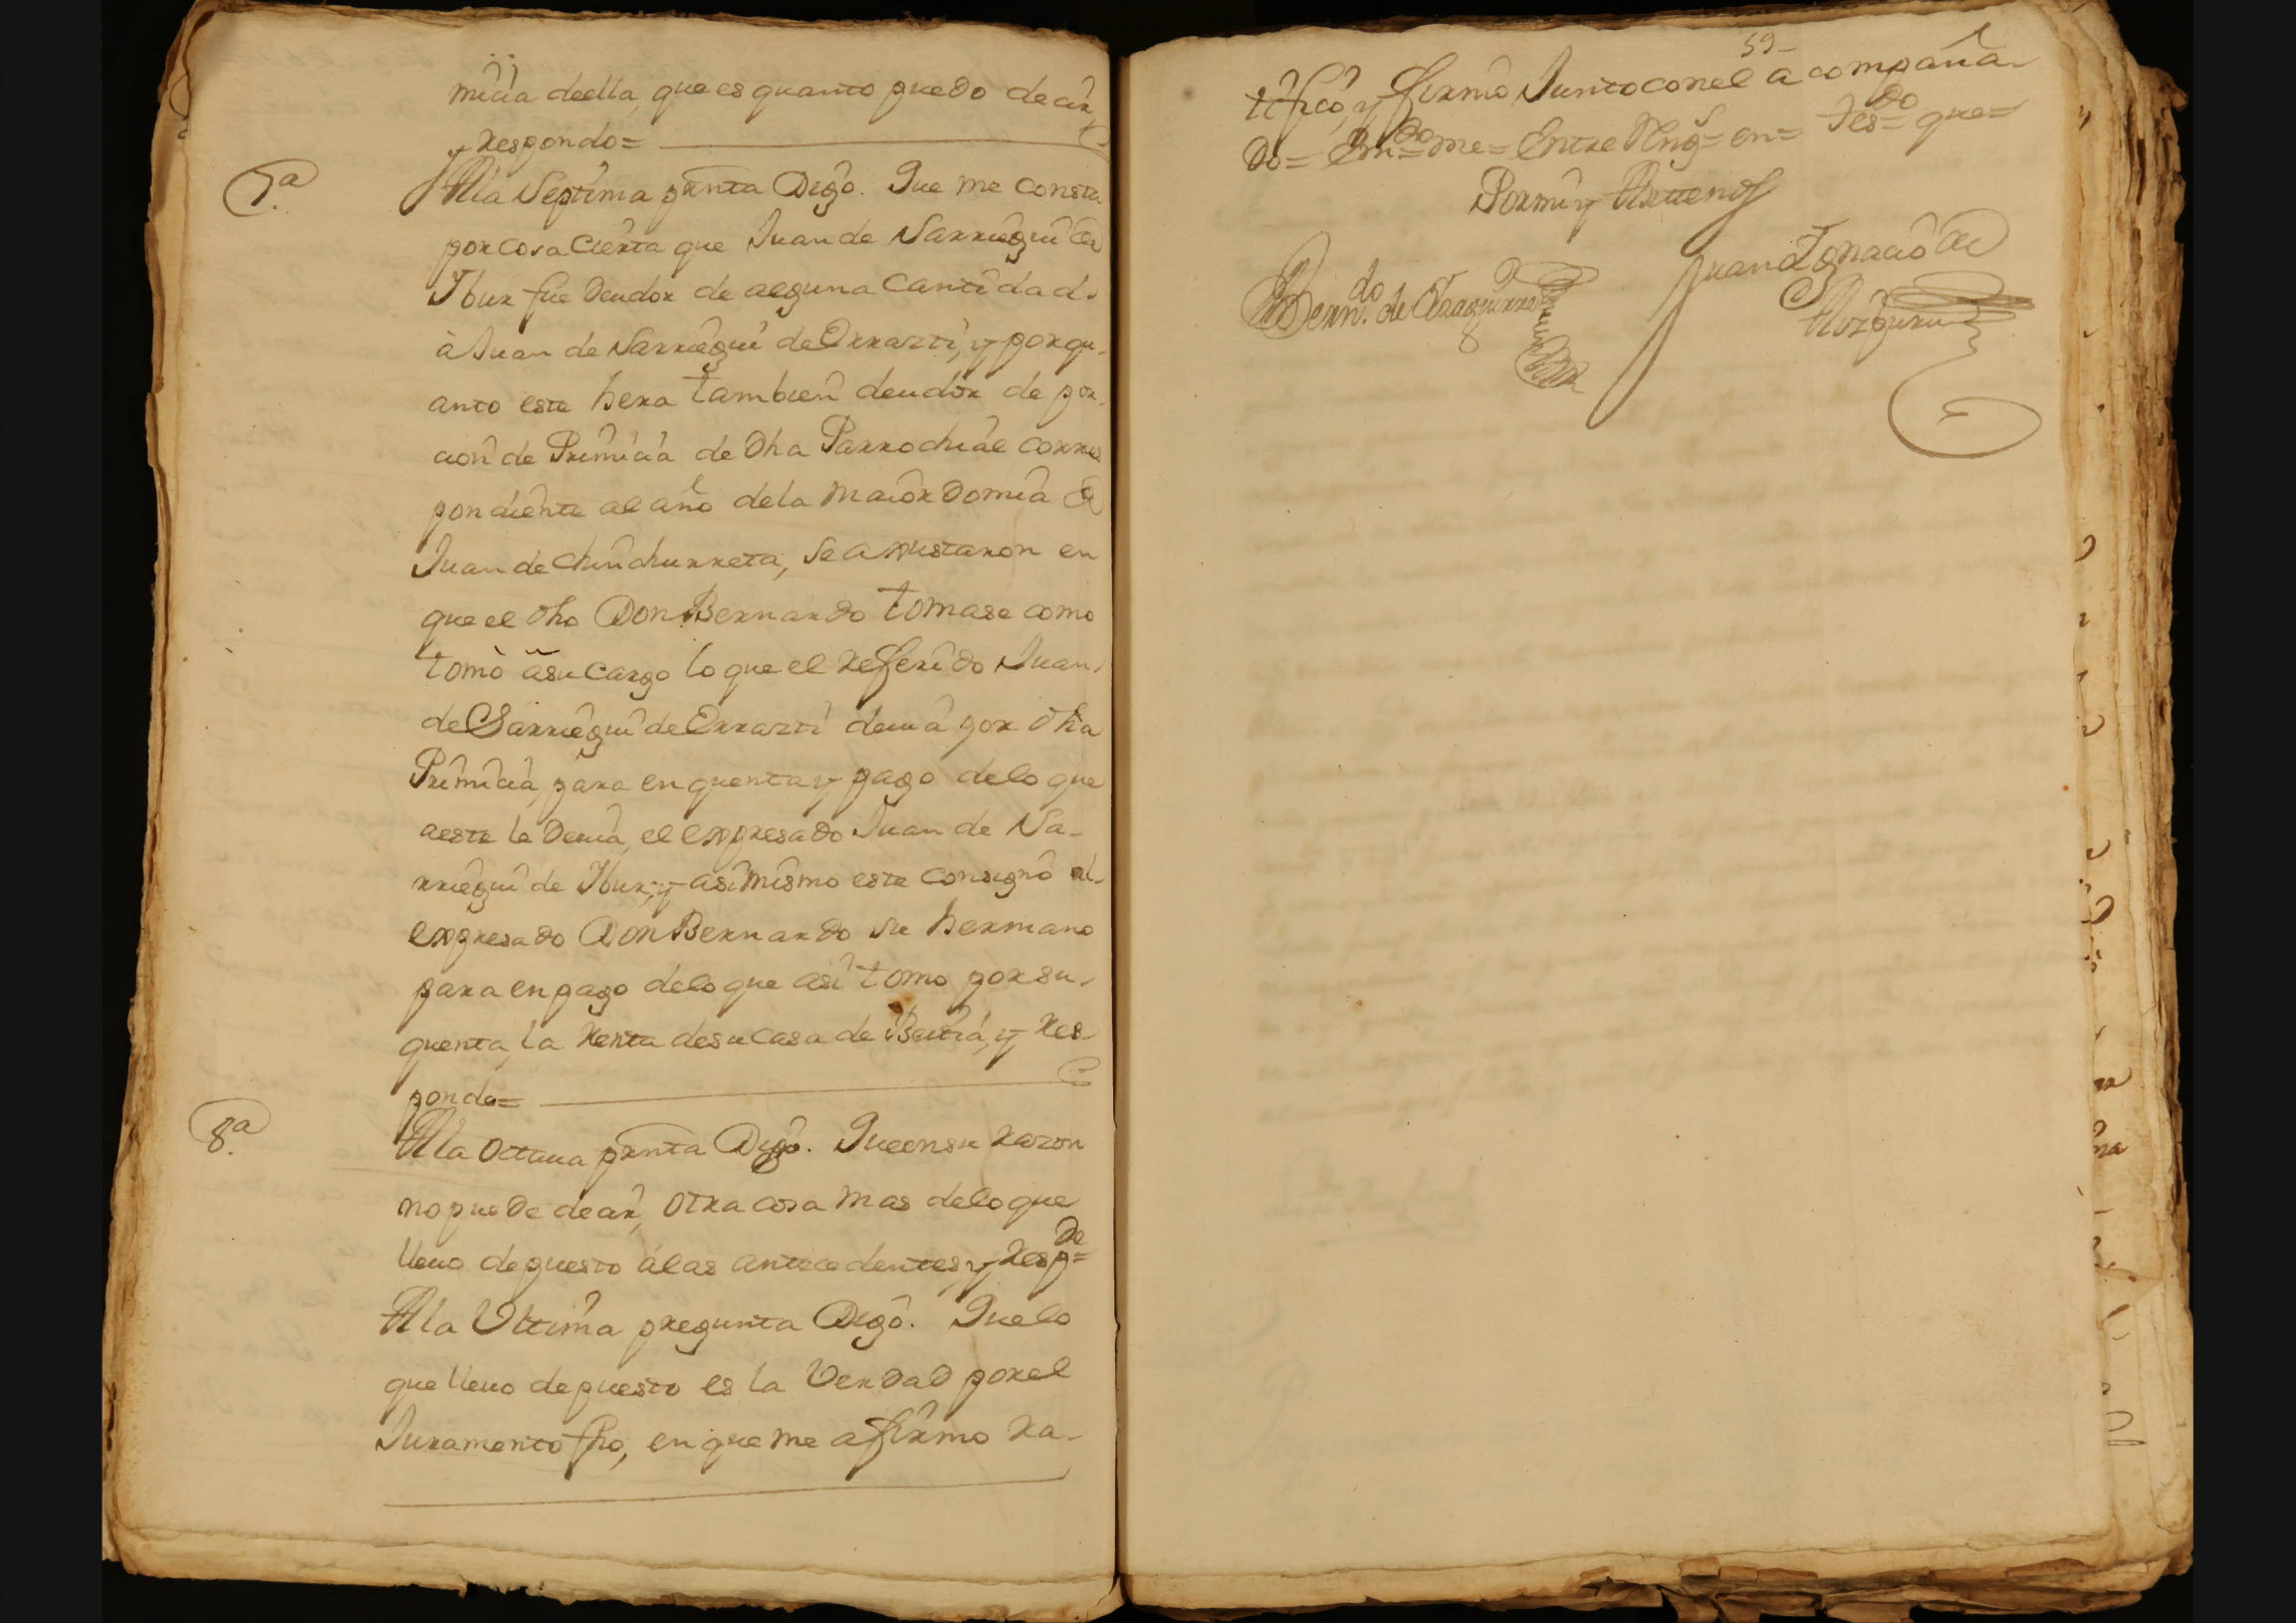 micia deella, que es quanto puedo decir,
y Respondo=
7.ª
A la Septima prnta Digo. Que me consta
por cosa Cierta que Juan de Sarriegui de
Ibur fue deudor de alguna Cantidad
à Juan de Sarriegui de Errazti, y por qu-
anto este hera tambien deudor de por-
cion de Primicia de dha Parrochial corres
pondiente al año dela maiordomia de
Juan de Chinchurreta, se axustaron en
que el dho Don Bernardo tomase como
tomò à su cargo lo que el referido Juan
de Sarriegui de Errazti deuia por dha
Primicia, para en quenta y pago delo que
aeste le Deuia, el expresado Juan de Sa-
rriegui de Ibur, y asimismo este consignò al
expresado Don Bernardo su hermano
para en pago delo que asi tomo por su
quenta, la Renta desu casa de Beitia, y Res
pondo=
8.ª
A la Octaua prnta Digo. Que en su razon
no puede decir, otra cosa mas delo que
lleuo depuesto álas antecedentes, y Resp.de=
A la Ultima pregunta Digo. Que lo
que lleuo depuesto es la Verdad por el
Juramento fho, en que me afirmo ra-
59-
tifico, y firmo Junto con el acompaña-
do= Em.do= me= Entre Rengs= en= Tes.do= que=
Por mi y Ante mi
Bern.do de Yraguirre
Juan Ignacio de
Aizpuru